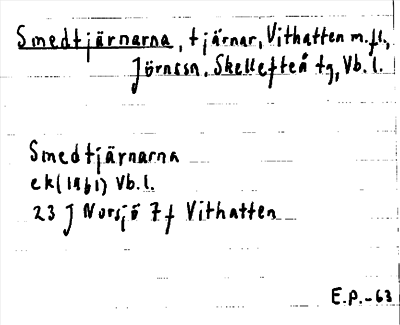 Smedtjärnarna, tjärnar, Vithatten m.fl.,
Jörnssn, Skellefteå tg, Vb.l.
Smedtjärnarna
ek(1961) Vb.l.
23 J Norsjö 7f Vithatten
E.P.-63